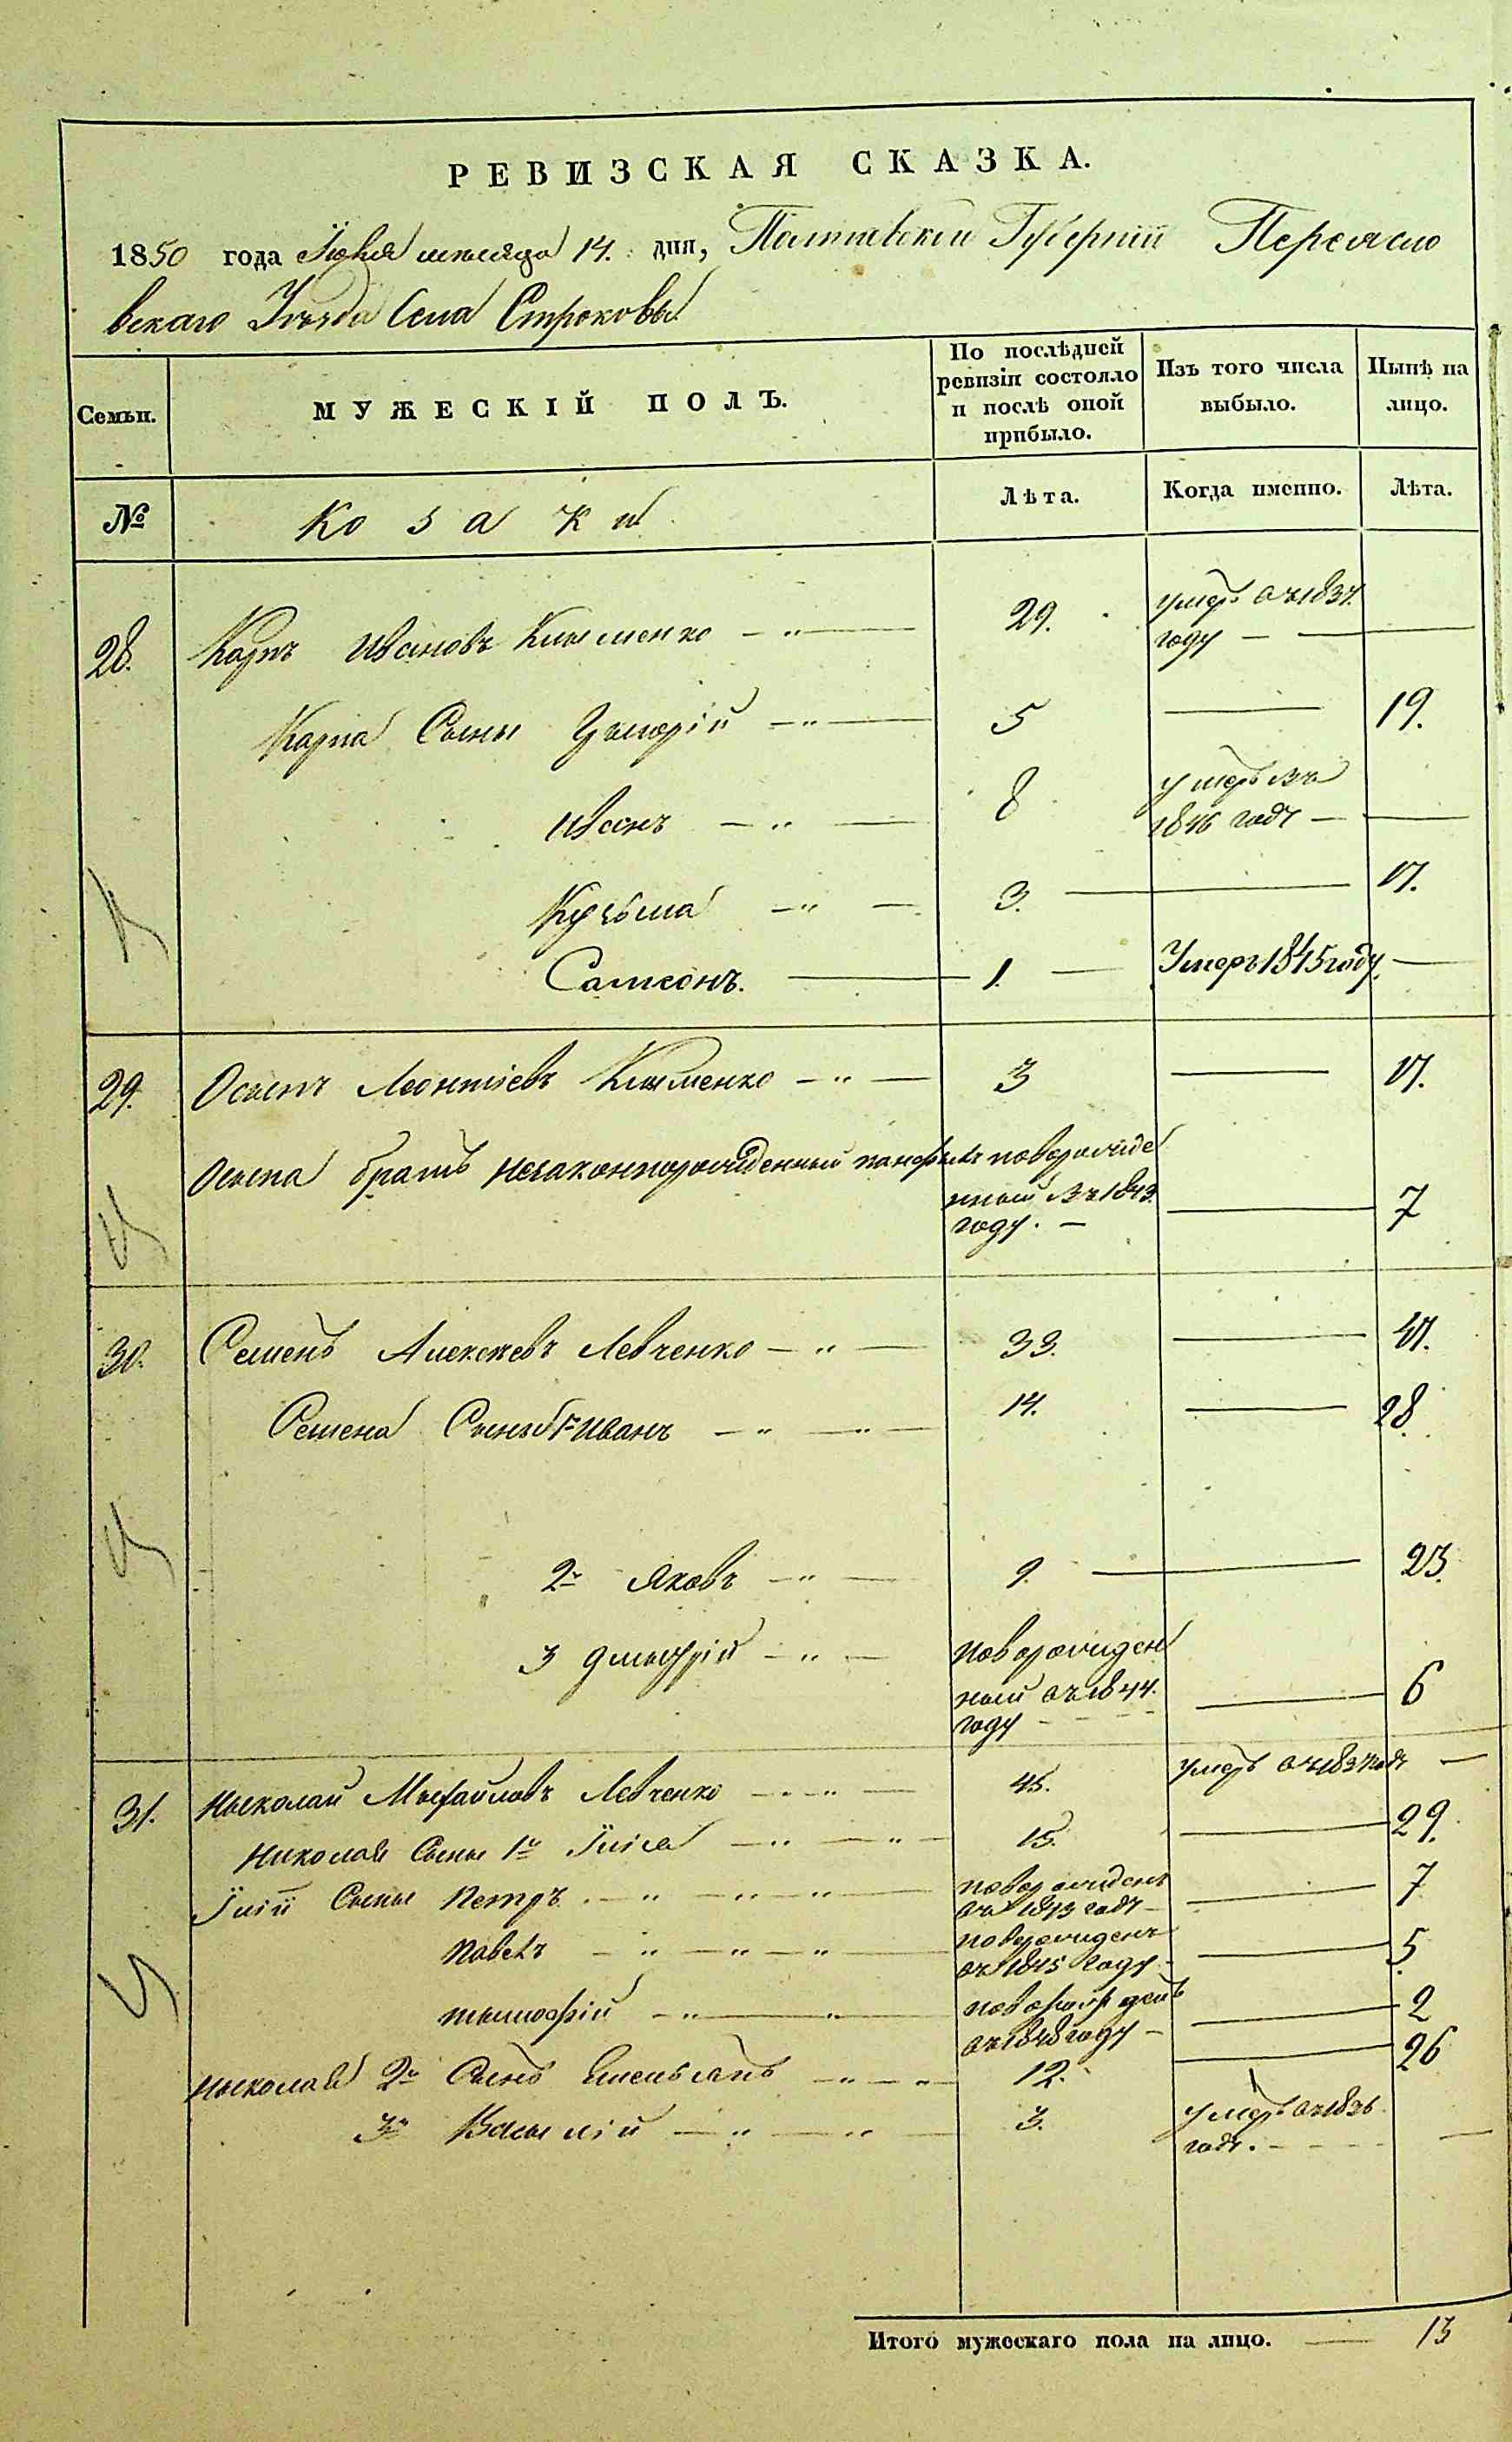 РЕВИЗСКАЯ СКАЗКА.
1850 года Іюня месяца 14. дня, Полтавской Губерніи Переясло
вскаго Уѣзда Села Строковы
Семьи.
МУЖЕСКІЙ ПОЛЪ.
По послѣдней ревизіи состояло и послѣ оной прибыло.
Изъ того числа выбыло.
Нынѣ на лицо.
№
Козаки
Лѣта.
Когда именно.
Лѣта.
28. Карпъ Ивановъ Клименко — " — 29. умеръ въ 1837.
году —
Карпа Сыны Григорій — " — 5 — 19.
Иванъ — " — 8 умеръ въ
1846 году —
Кузьма — " — 3. — 17.
Самсонъ. — 1. — Умеръ 1845 году. —
29. Осыпъ Леонтіевъ Клименко — " — 3 — 17.
Осыпа братъ незаконнорожденный Панфилъ новорожде
нный въ 1843.
году. — — 7
30. Семенъ Алексеевъ Левченко — " — 33. — 47.
Семена Сыны 1й Иванъ — " — " — 14. — 28.
2й Яковъ — " — 9. — 23.
3 Дмытрій — " — новорожден
ный въ 1844.
году — — 6
31. Ныколай Мыхайловъ Левченко — " — 45. умеръ въ 1837 годѣ —
Николая Сыны 1й Ілія — " — " — 15. — 29.
Іліи Сыны Петръ. — " — " — " — новорожденъ
въ 1843 годѣ — — 7
Павелъ — " — " — " — новорожденъ
въ 1845 году. — 5.
тымофій — " — " новорожденъ
въ 1848 году — — 2
Ныколая 2й Сынъ Емельянъ — " — " — 12. — 26
3й Васылій — " — " — 3. умеръ въ 1836
годѣ. — —
Итого мужескаго пола на лицо. — 13